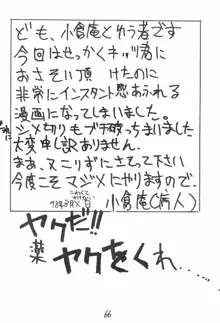 ども、小倉庵とゆう者です
今回はせっかくネッツ君に
おさそい頂けたのに
非常にインスタント感あふれる
漫画になってしまいました。
シメ切りもブチ破っちまいました
大変申し訳ありません。
まぁ、又こりずにさそって下さい
今度こそマジメにやりますので。
小倉庵(病人)
ヤクだ!!
薬
ヤクをくれ…
66